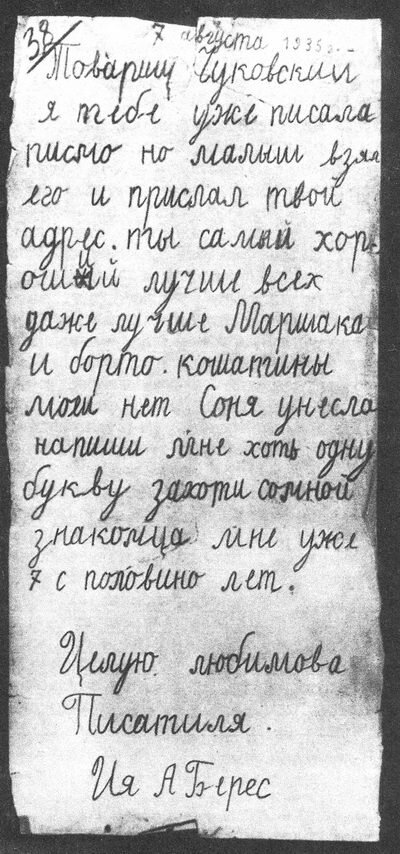 38
7 августа 1935 г.
Товарищ Чуковский
я тебе уже писала
писмо но малыш взял
его и прислал твой
адрес. ты самый хор-
оший лучше всех
даже лучше Маршака
и борто. кошатины
моги нет Соня унесла
напиши мне хоть одну
букву захоти сомной
знакомца мне уже
7 с половино лет.
Целую любимова
Писатиля.
Ия А Берес